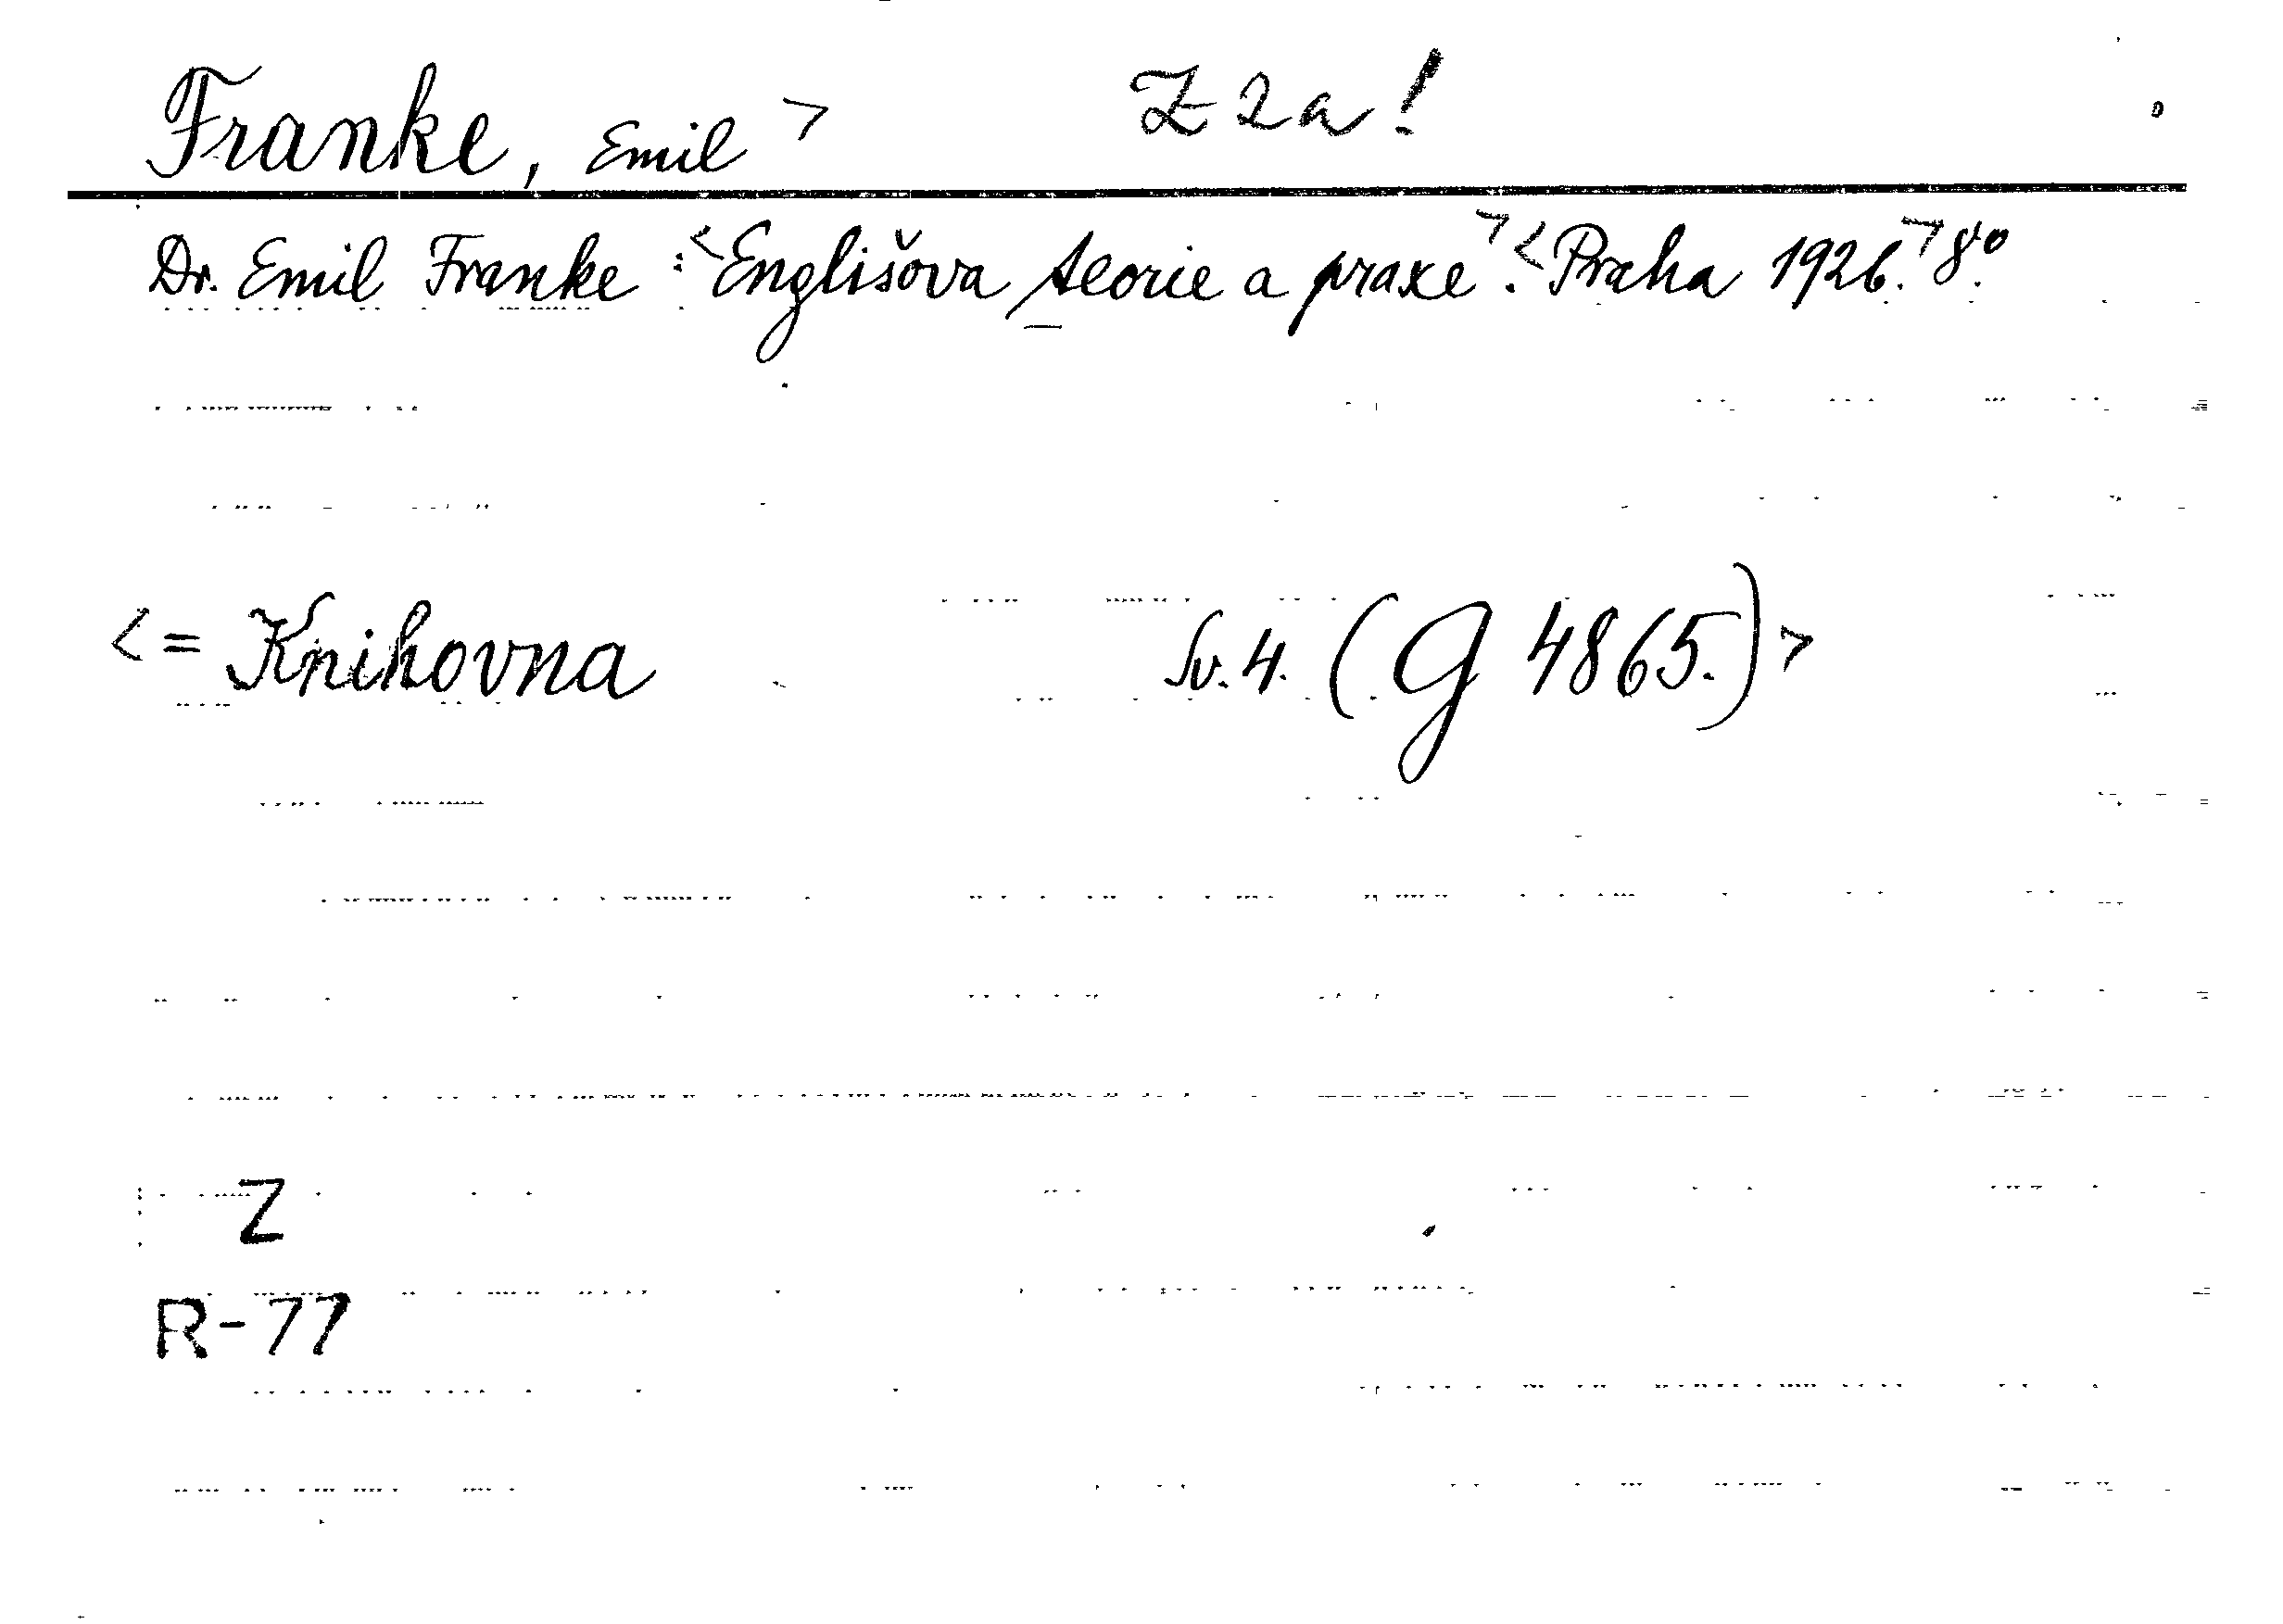 Franke, Emil > Z 2 a !
Dr. Emil Franke :<Englišova teorie a praxe>.<Praha 1926.>8.º
<= Knihovna Sv. 4. (G 4865.)>
Z
R-77